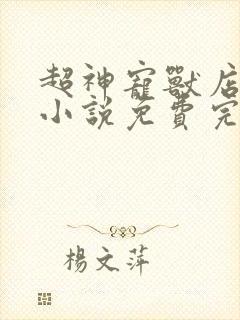 超神寵獸店
小說免費完
楊文萍